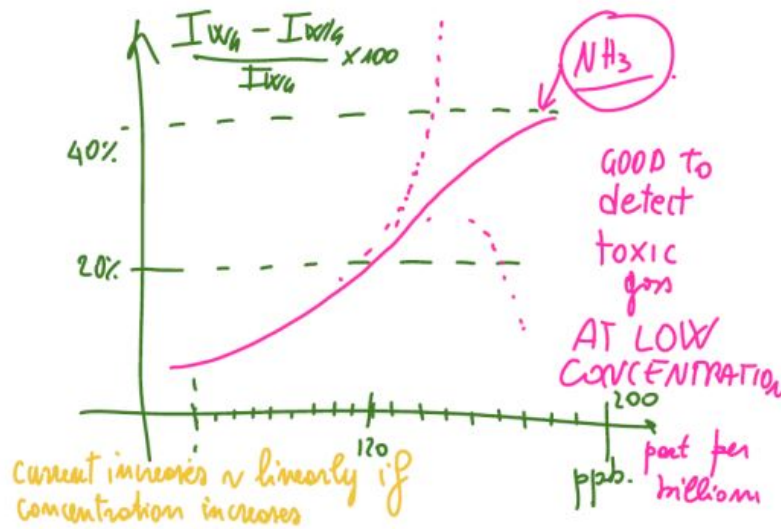 I WG - I W/G / I WG ×100
NH3
40%
GOOD TO
detect
20%
TOXIC
gas
AT LOW
CONCENTRATION
200
120
ppb.
part per
billion
current increases ~ linearly if
concentration increases